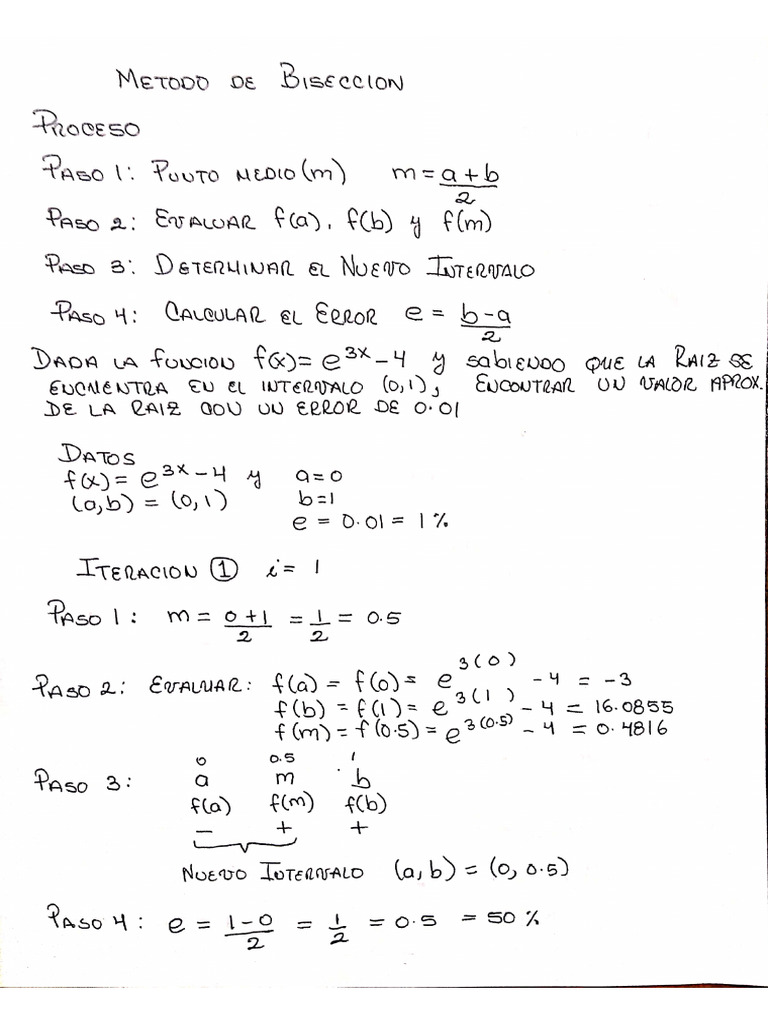 METODO DE BISECCION
PROCESO
PASO 1: PUNTO MEDIO(m) m = a + b / 2
PASO 2: EVALUAR f(a), f(b) y f(m)
PASO 3: DETERMINAR EL NUEVO INTERVALO
PASO 4: CALCULAR EL ERROR e = b - a / 2
DADA LA FUNCION f(x) = e^3x - 4 y SABIENDO QUE LA RAIZ SE
ENCUENTRA EN EL INTERVALO (0,1), ENCONTRAR UN VALOR APROX.
DE LA RAIZ CON UN ERROR DE 0.01
DATOS
f(x) = e^3x - 4 y a = 0
(a,b) = (0,1) b = 1
e = 0.01 = 1 %
ITERACION ① i = 1
PASO 1: m = 0 + 1 / 2 = 1 / 2 = 0.5
PASO 2: EVALUAR: f(a) = f(0) = e^3(0) - 4 = -3
f(b) = f(1) = e^3(1) - 4 = 16.0855
f(m) = f(0.5) = e^3(0.5) - 4 = 0.4816
0 0.5 1
PASO 3: a m b
f(a) f(m) f(b)
- + +
NUEVO INTERVALO (a,b) = (0, 0.5)
PASO 4: e = 1 - 0 / 2 = 1 / 2 = 0.5 = 50 %